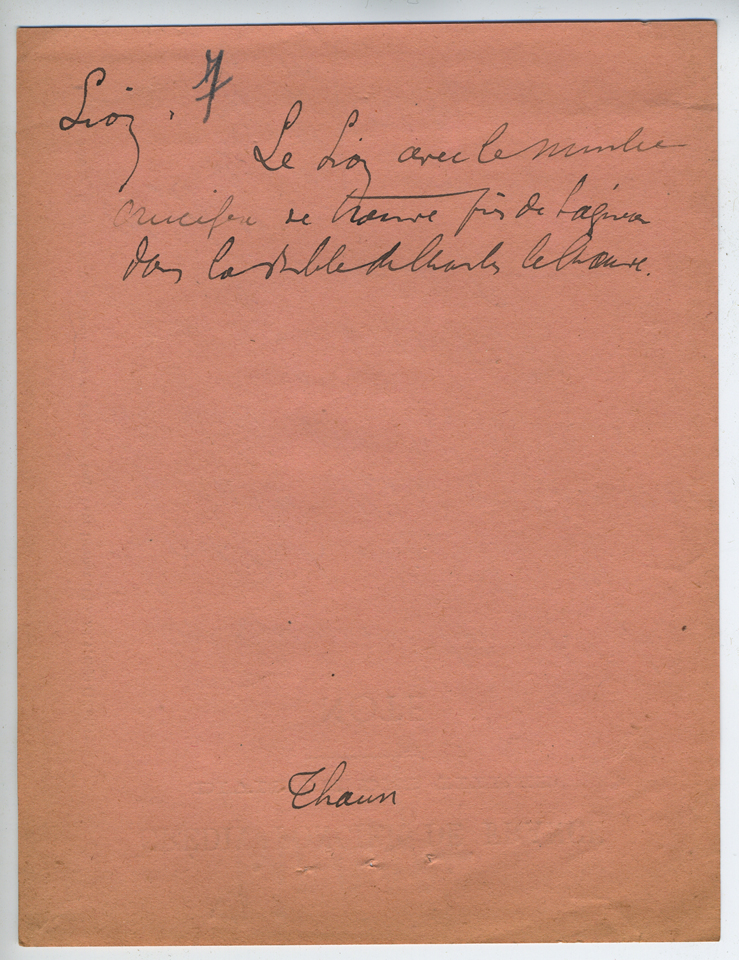 Lion. 7
Le Lion avec le nimbe
crucifère se trouve près de l'agneau
dans la bible de Charles le Chauve.
Thaun